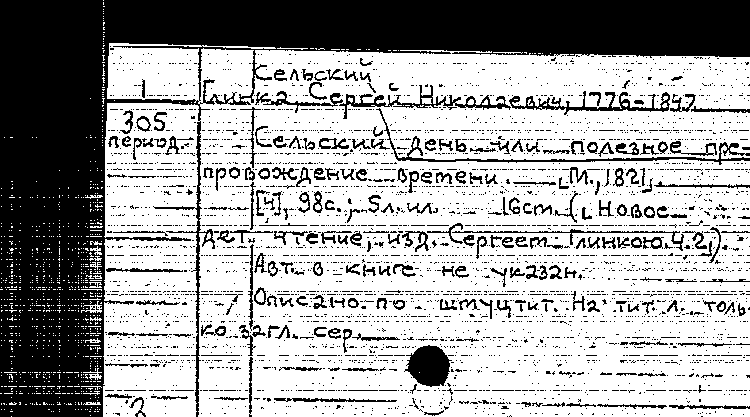 Сельский
1 Глинка, Сергей Николаевич, 1776-1847
305 период. Сельский день или полезное пре-
провождение времени. [М., 1821].
[4], 98с.; 5л. ил. 16cm. ([Новое
дет. чтение, изд. Сергеем Глинкою. Ч.2]).
Авт. в книге не указан.
Описано по шмуцтит. На тит. л. толь-
ко загл. сер.